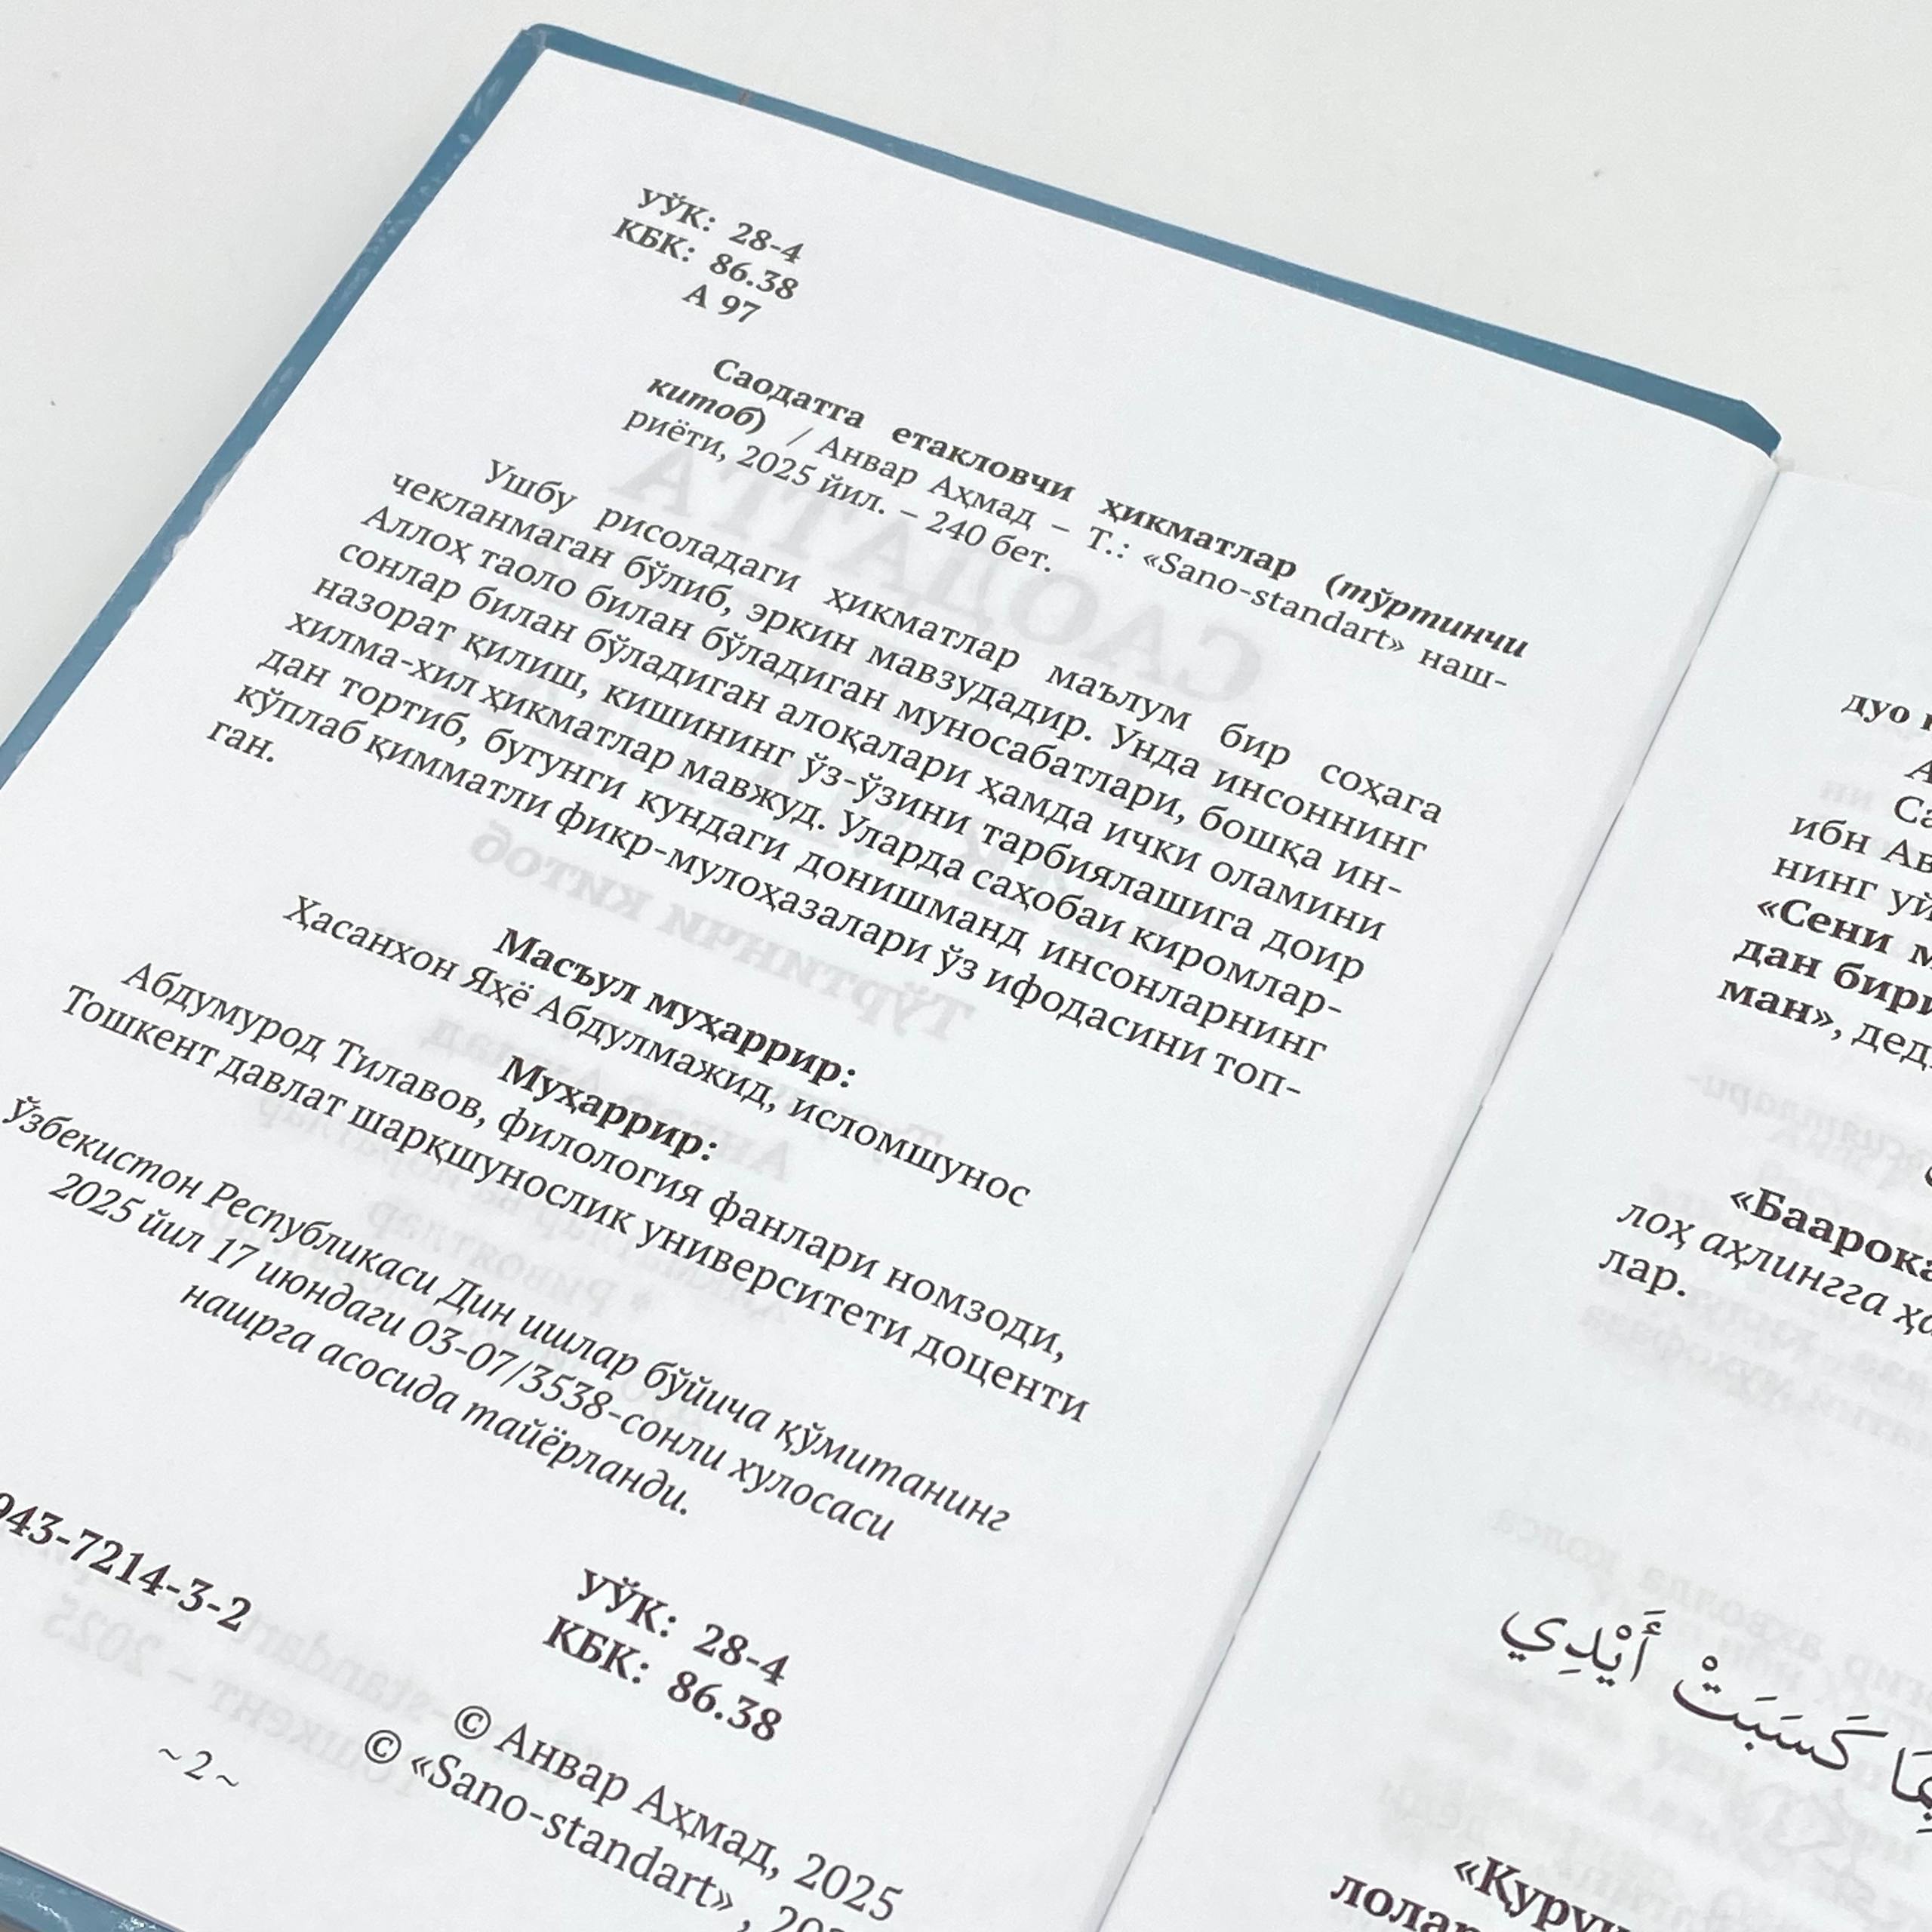 УЎК: 28-4
КБК: 86.38
А 97
Саодатга етакловчи ҳикматлар (тўртинчи
китоб) / Анвар Аҳмад – Т.: «Sano-standart» наш-
риёти, 2025 йил. – 240 бет.
Ушбу рисоладаги ҳикматлар маълум бир соҳага
чекланмаган бўлиб, эркин мавзудадир. Унда инсоннинг
Аллоҳ таоло билан бўладиган муносабатлари, бошқа ин-
сонлар билан бўладиган алоқалари ҳамда ички оламини
назорат қилиш, кишининг ўз-ўзини тарбиялашига доир
хилма-хил ҳикматлар мавжуд. Уларда саҳобаи киромлар-
дан тортиб, бугунги кундаги донишманд инсонларнинг
кўплаб қимматли фикр-мулоҳазалари ўз ифодасини топ-
ган.
Масъул муҳаррир:
Ҳасанхон Яҳё Абдулмажид, исломшунос
Муҳаррир:
Абдумурод Тилавов, филология фанлари номзоди,
Тошкент давлат шарқшунослик университети доценти
Ўзбекистон Республикаси Дин ишлар бўйича қўмитанинг
2025 йил 17 июндаги 03-07/3538-сонли хулосаси
нашрга асосида тайёрланди.
943-7214-3-2
УЎК: 28-4
КБК: 86.38
© Анвар Аҳмад, 2025
© «Sano-standart»,
~ 2 ~
дуо
ибн
нинг
«Сени
дан
ман», 
«Баарока
лоҳ аҳлингга
лар.
كَسَبَتْ أَيْدِي